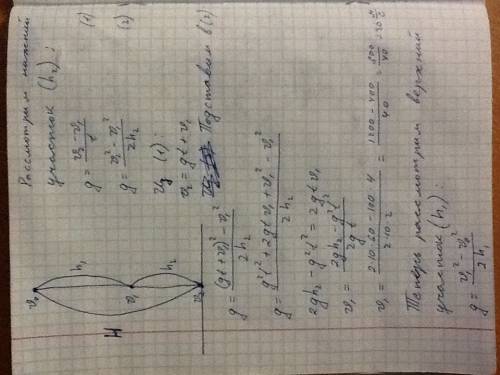 Рассмотрим нижний
участок (h₂):
g = (v₂ - v₁)/t (1)
g = (v₂² - v₁²)/2h₂ (2)
Из (1):
v₂ = gt + v₁
Подставим в (2)
v₀
h₁
v₁
h₂
v₂
H
g = ((gt + v₁)² - v₁²)/2h₂
g = (g²t² + 2gtv₁ + v₁² - v₁²)/2h₂
2gh₂ - g²t² = 2gtv₁
v₁ = (2gh₂ - g²t²)/2gt
v₁ = (2·10·60 - 100·4)/(2·10·2) = (1200 - 400)/40 = 800/40 = 20 м/с
Теперь рассмотрим верхний
участок (h₁):
g = (v₁² - v₀²)/2h₁